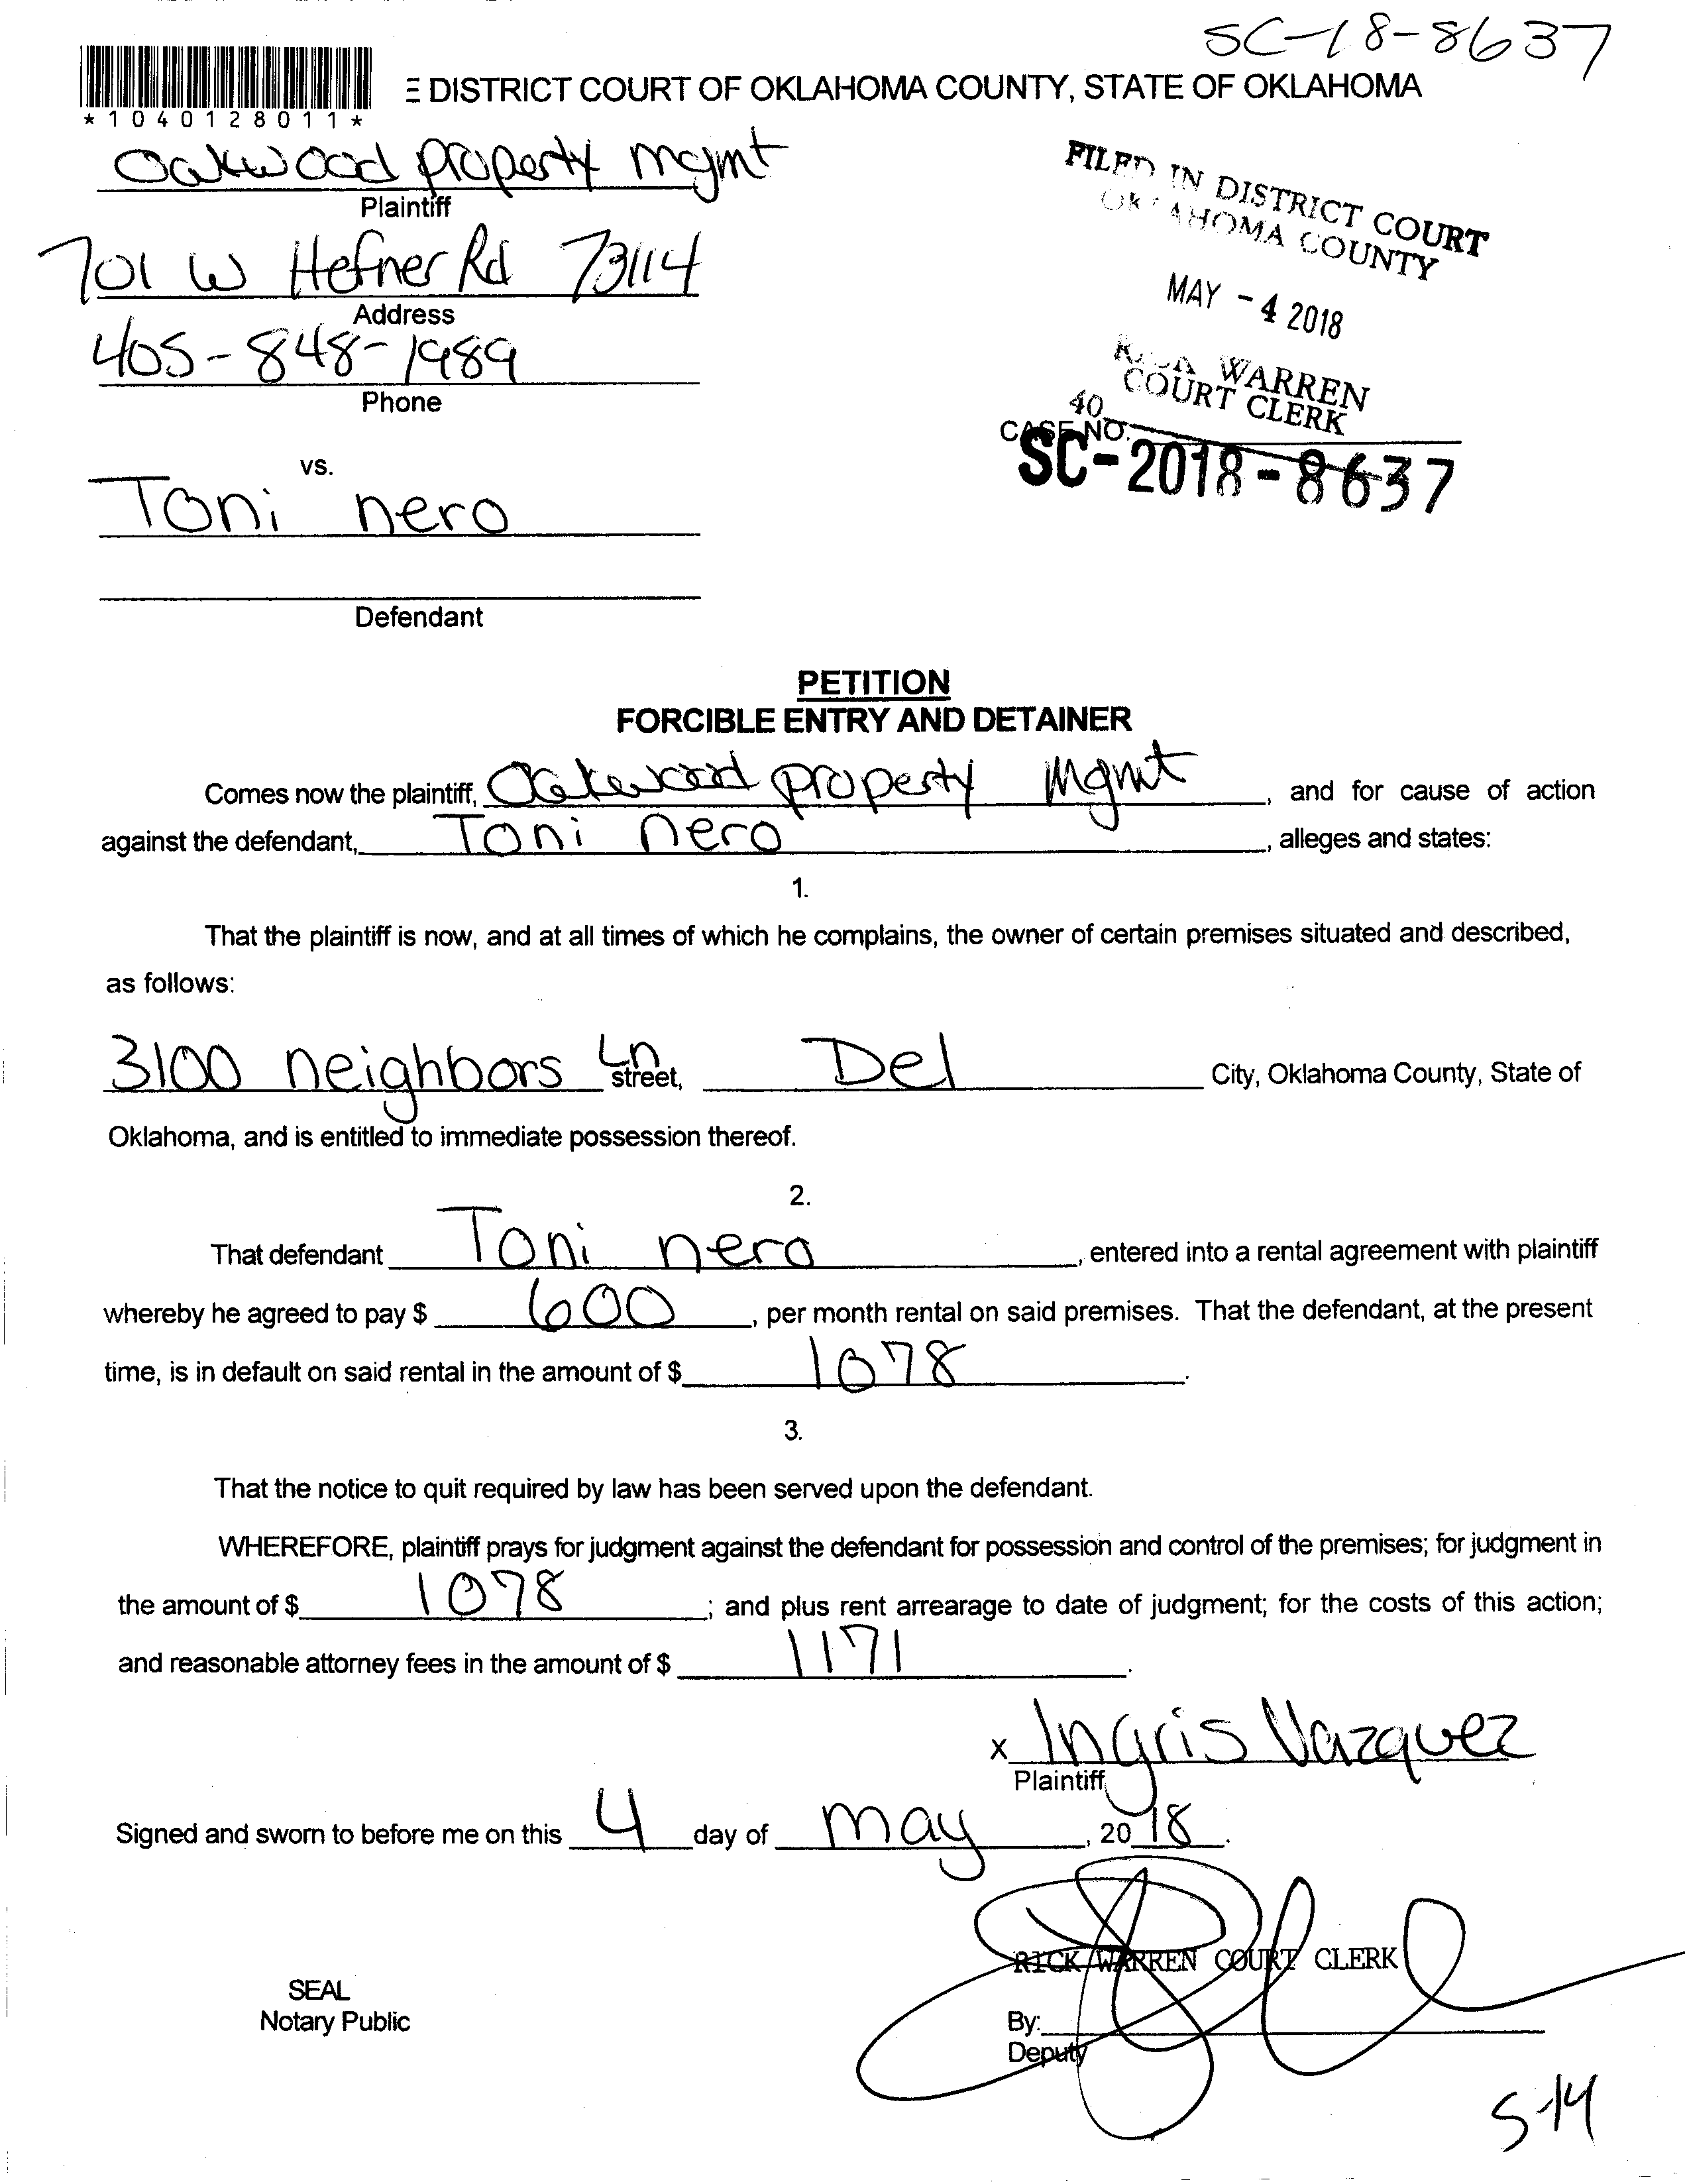 SC-18-8637
DISTRICT COURT OF OKLAHOMA COUNTY, STATE OF OKLAHOMA
*1040128011*
Oakwood property mgmt
Plaintiff
701 W Hefner Rd 73114
Address
405-848-1989
Phone
FILED IN DISTRICT COURT
OKLAHOMA COUNTY
MAY - 4 2018
WARREN
COURT CLERK
40
CASE NO.
SC-2018-8637
vs.
Toni nero
Defendant
PETITION
FORCIBLE ENTRY AND DETAINER
Comes now the plaintiff, Oakwood property Mgmt, and for cause of action
against the defendant, Toni nero, alleges and states:
1.
That the plaintiff is now, and at all times of which he complains, the owner of certain premises situated and described,
as follows:
3100 neighbors Ln street, Del City, Oklahoma County, State of
Oklahoma, and is entitled to immediate possession thereof.
2.
That defendant Toni nero, entered into a rental agreement with plaintiff
whereby he agreed to pay $ 600, per month rental on said premises. That the defendant, at the present
time, is in default on said rental in the amount of $ 1078.
3.
That the notice to quit required by law has been served upon the defendant.
WHEREFORE, plaintiff prays for judgment against the defendant for possession and control of the premises; for judgment in
the amount of $ 1078; and plus rent arrearage to date of judgment; for the costs of this action;
and reasonable attorney fees in the amount of $ 1171.
x Ingris Vazquez
Plaintiff
Signed and sworn to before me on this 4 day of may, 2018.
RICK WARREN COURT CLERK
SEAL
Notary Public
By:
Deputy
5-14